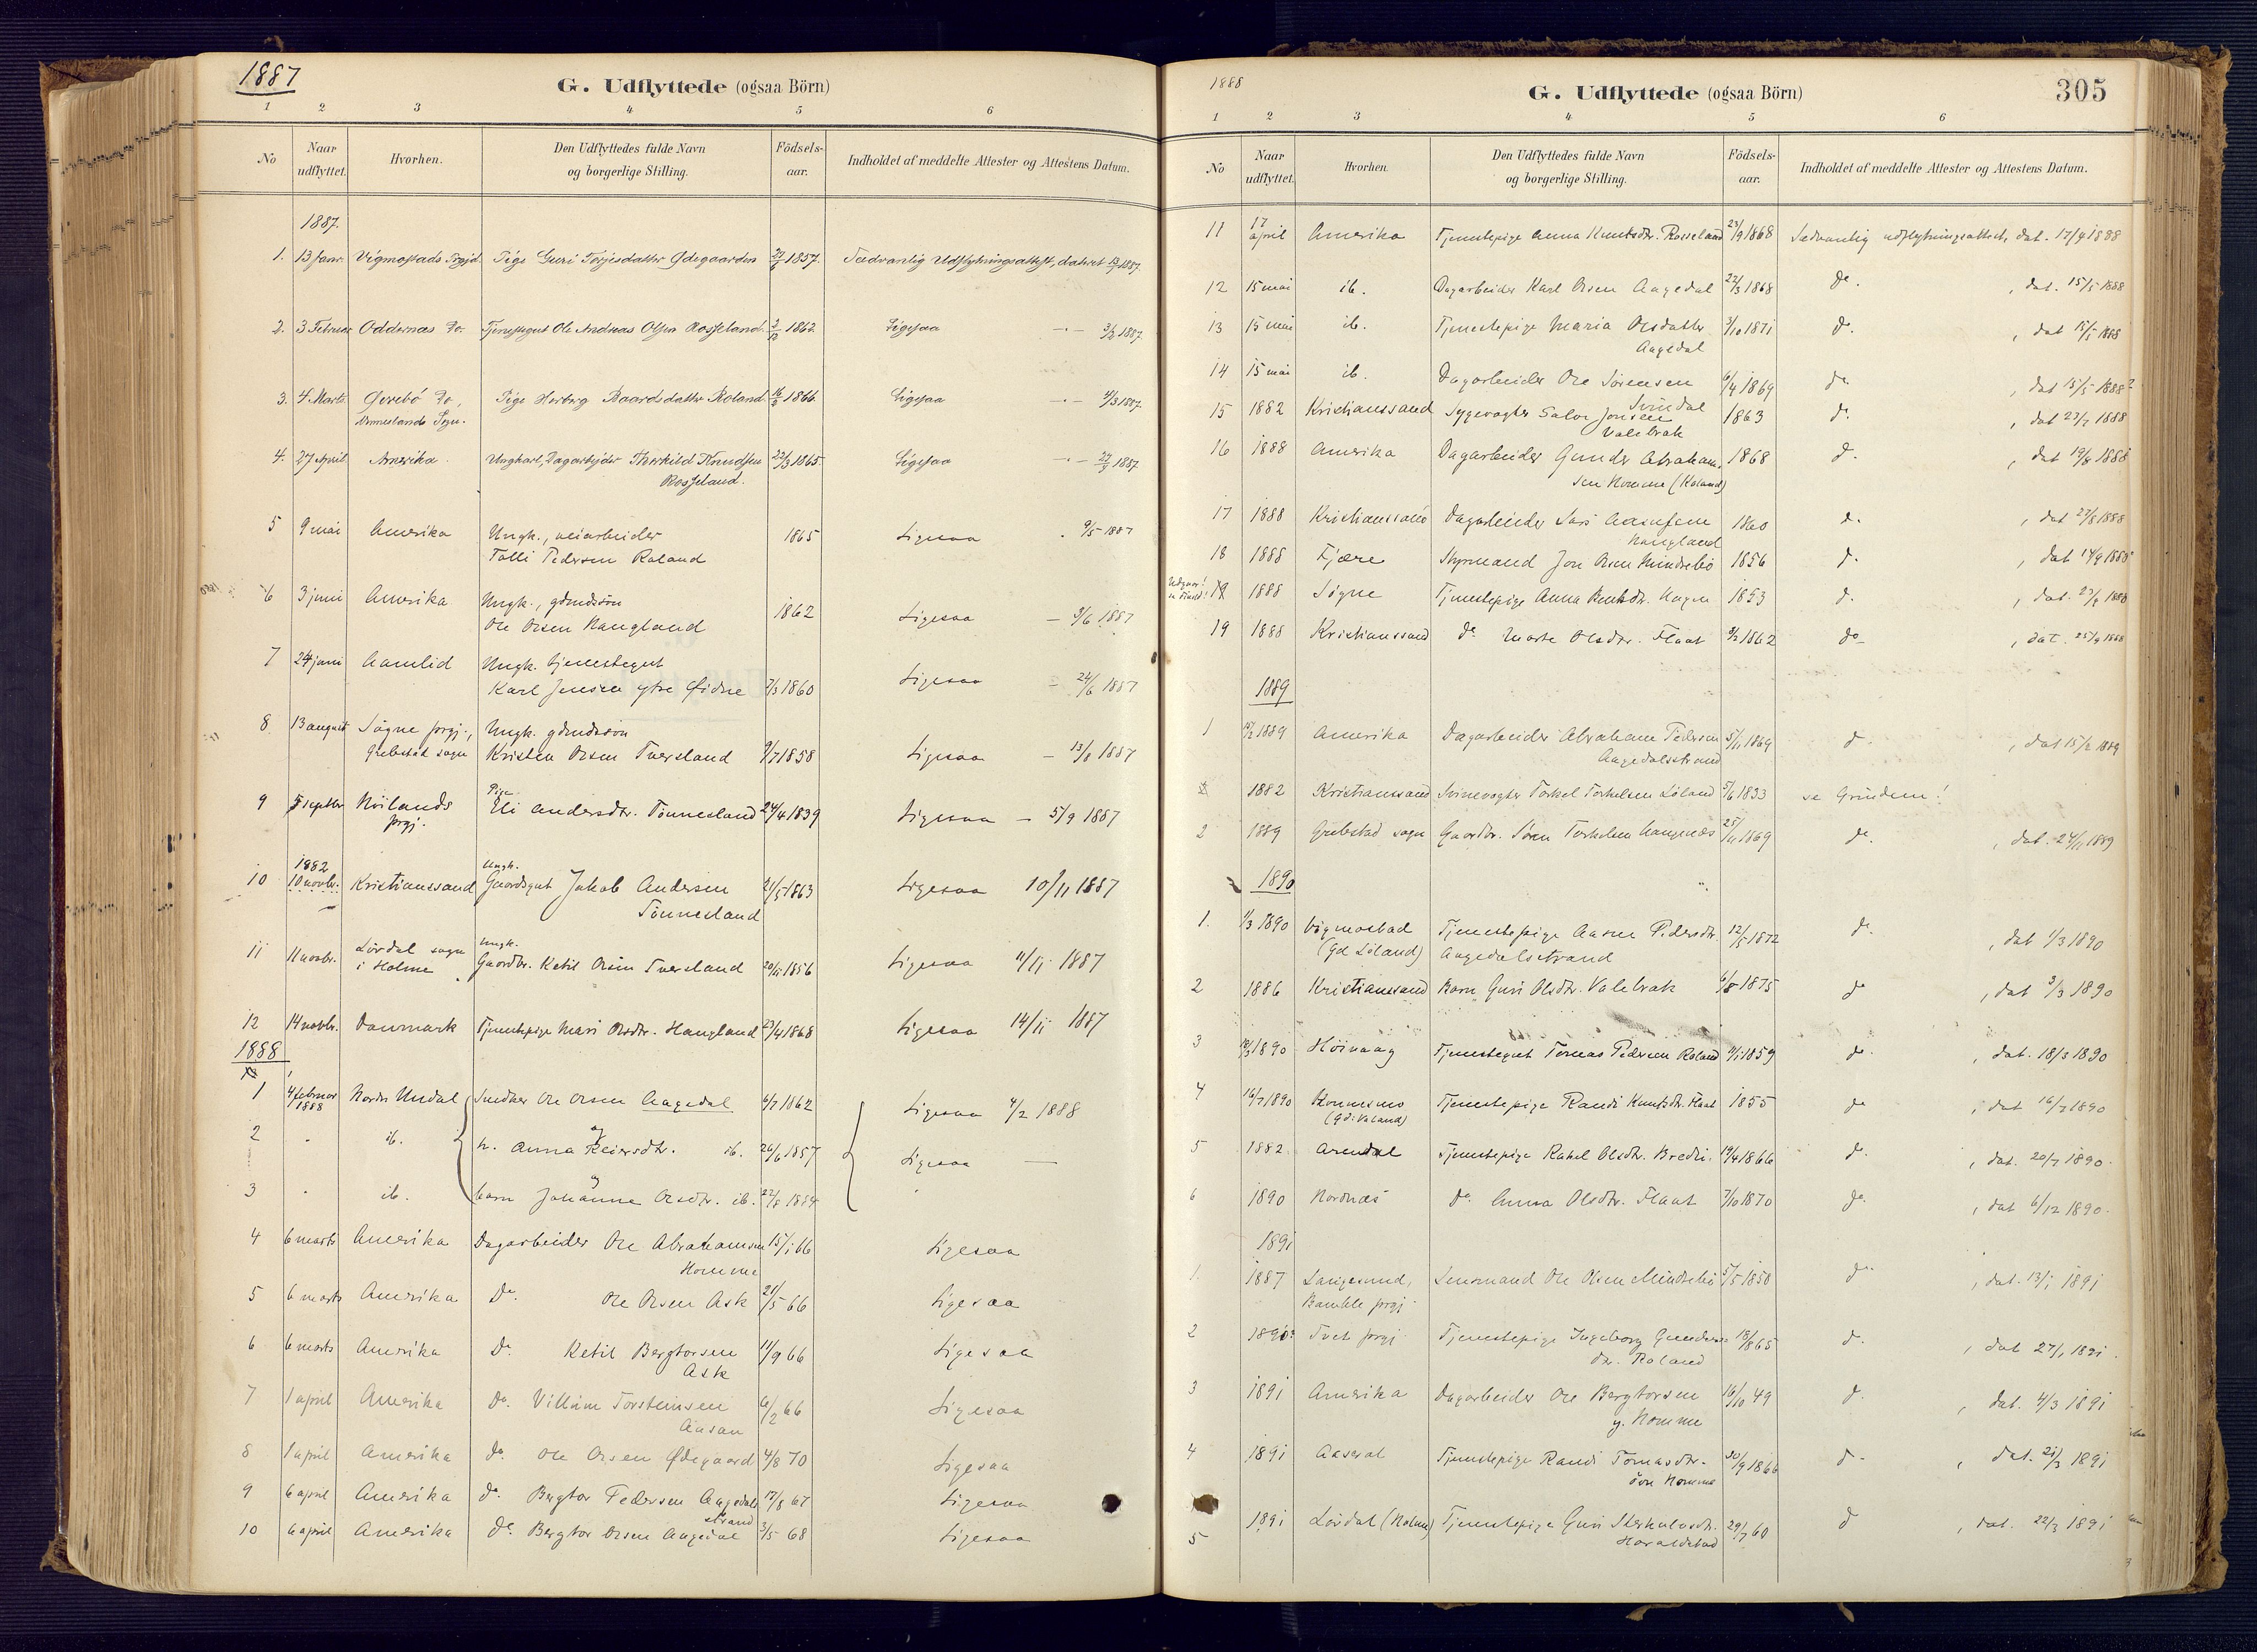 1887
G. Udflyttede (ogsaa Börn)
1 2 3 4 5 6
No Naar udflyttet. Hvorhen. Den Udflyttedes fulde Navn og borgerlige Stilling. Födsels-aar. Indholdet af meddelte Attester og Attestens Datum.
1887.
1. 13 Janr. Vigmostads Prgjd. Pige Guri Terjesdatter Ødegaarden 1857. Sædvanlig Udflytningsattest, dateret 13/1 1887.
2. 3 Februar Oddernæs Do Tjenestegut Ole Andreas Olsen Rosseland. 1862 Ligesaa 3/2 1887.
3. 4 Marts Øvrebö Do, Pige Hertvig Baardsdatter Roland 1866 Ligesaa 4/3 1887.
Sogn.
4. 27 April Amerika. Ungkarl, Dagarbejder Therkild Knudsen 22/3 1865. Ligesaa 1887.
Rosseland.
5 9 mai Amerika Ungk., veiarbeider 1865 Ligesaa 9/5 1887
Talli Pedersen Roland
6 3 juni Amerika Ungk., gdmdssön 1862 Ligesaa 3/6 1887
Ole Olsen Haugland
7 24 juni Aamlid Ungk. tjenestegut
Karl Jensen ytre Øidne 7/3 1860 Ligesaa 24/6 1887
8 13 august Sögne prgj., Ungk. gdmdssön
Grebstad sogn Kristen Olsen Tversland 9/7 1858 Ligesaa 13/8 1887
9 5 septbr Höilands prgj. Pige Eli Andersdtr. Tönnesland 24/4 1839 Ligesaa 5/9 1887
1882
10 10 novbr. Kristianssand Ungk. Gaardsgut Jakob Andersen 21/5 1863 Ligesaa 10/11 1887
Tönnesland
11 11 novbr. Lövdal sogn i Holme Ungk. Gaardbr. Ketil Olsen Tversland 20/11 1856 Ligesaa 11/11 1887
12 14 novbr. Danmark Tjenestepige Mari Olsdtr. Haugland 23/4 1868 Ligesaa 14/11 1887
1888
1 4 februar 1888 Nordre Undal Inderst Ole Olsen Aagedal 6/7 1862 Ligesaa 4/2 1888
2 " ib. h. Anna Reiersdtr. ib. 26/6 1857 Ligesaa —
3 " ib. barn Johanne Olsdtr. ib. 22/8 1884 "
4 6 marts Amerika Dagarbeider Ole Abrahamsen 15/1 66 Ligesaa
Homme
5 6 marts Amerika Do. Ole Olsen Ask 21/5 66 Ligesaa
6 6 marts Amerika Do. Ketil Bergtorsen 11/9 66 Ligesaa
Ask
7 1 april Amerika Do. Villum Torsteinsen 6/2 66 Ligesaa
Aasan
8 1 april Amerika Do. Ole Olsen Ødegaard 4/8 70 Ligesaa
9 6 april Amerika Do. Bergtor Pedersen Aagedals 17/8 67 Ligesaa
strand
10 6 april Amerika Do. Bergtor Olsen Aagedal 3/5 68 Ligesaa
1888
G. Udflyttede (ogsaa Börn)
305
1 2 3 4 5 6
No Naar udflyttet. Hvorhen. Den Udflyttedes fulde Navn og borgerlige Stilling. Födsels-aar. Indholdet af meddelte Attester og Attestens Datum.
11 17 april Amerika Tjenestepige Anna Knutsdtr. Rosseland 23/9 1868 Sædvanlig udflytningsattest, dat. 17/4 1888
12 15 mai ib. Dagarbeider Karl Olsen Aagedal 22/3 1868 do. , dat. 15/5 1888
13 15 mai ib. Tjenestepige Maria Olsdatter 3/10 1871 do. , dat 15/5 1888
Aagedal
14 15 mai ib. Dagarbeider Ole Sörensen 6/4 1869 do. , dat 15/5 1888
Svindal
15 1882 Kristianssand Sygevogter Salve Jonsen 1863 do. , dat 23/7 1888
Valebrak
16 1888 Amerika Dagarbeider Gunder Abraham- 1868 do. , dat 19/8 1888
sen Homme (Roland)
17 1888 Kristianssand Dagarbeider Lars Aasulfsen 1860 do. , dat 27/8 1888
Haugland
18 1888 Fjære Styrmand Jon Olsen Mindrebö 1856 do. , dat 14/9 1888
1888 Sögne Tjenestepige Anna Bentsdr. Haugen 1853 do. , dat. 1888
19 1888 Kristianssand do Marte Olsdtr. Flaat 3/2 1862 do , dat. 25/9 1888
1889
1 15/2 1889 Amerika Dagarbeider Abraham Pedersen 5/11 1869 do , dat 15/2 1889
Aagedalsstrand
1882 Kristianssand Svinevogter Torkel Torkelsen Löland 5/6 1833 se Grunden!
2 1889 Grebstad sogn Gaardbr. Sören Torkelsen Haugenes 25/11 1869 do. , dat. 24/11 1889
1890
1. 1/3 1890 Vigmostad Tjenestepige Aasne Pedersdtr 12/5 1872 do. , dat 1/3 1890
(Gd Löland) Aagedalsstrand
2 1886 Kristianssand Barn Guri Olsdtr. Valebrak 6/8 1875 do , dat 3/3 1890
3 18/3 1890 Höivaag Tjenestegut Tomas Pedersen Roland 9/1 1859 do. , dat. 18/3 1890
4 16/7 1890 Tjenestepige Randi Knutsdtr. Flaat 1855 do , dat 16/7 1890
5 1882 Arendal Tjenestepige Rakel Olsdtr. Bredli. 19/4 1866 do. , dat. 20/7 1890.
6 1890 Nordnæs do. Anna Olsdtr. Flaat 7/10 1870 do. , dat 6/12 1890.
1891
1. 1887 Langesund, Lensmand Ole Olsen Mindrebö 5/5 1850 do. , dat. 13/1 1891
Bamble prgj.
2 1890 Tvet prgj. Tjenestepige Ingeborg Gunders- 18/8 65 do. , dat 27/1 1891.
dtr. Roland
3 1891 Amerika Dagarbeider Ole Bergtorsen 16/10 49 do. , dat. 4/3 1891
y. Homme
4 1891 Aaseral Tjenestepige Randi Tomasdtr. 30/9 1866 do. , dat. 21/3 1891
övre Homme
5 1891 Lövdal (Holum) Tjenestepige Guri Sterkulvsdtr. 29/7 60 do , dat. 22/3 1891
Haraldstad